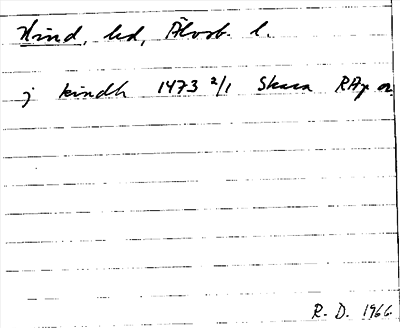 Kind, hd, Älvsb. l.
j kindh 1473 2/1 Skara RAp or.
R. D. 1966.